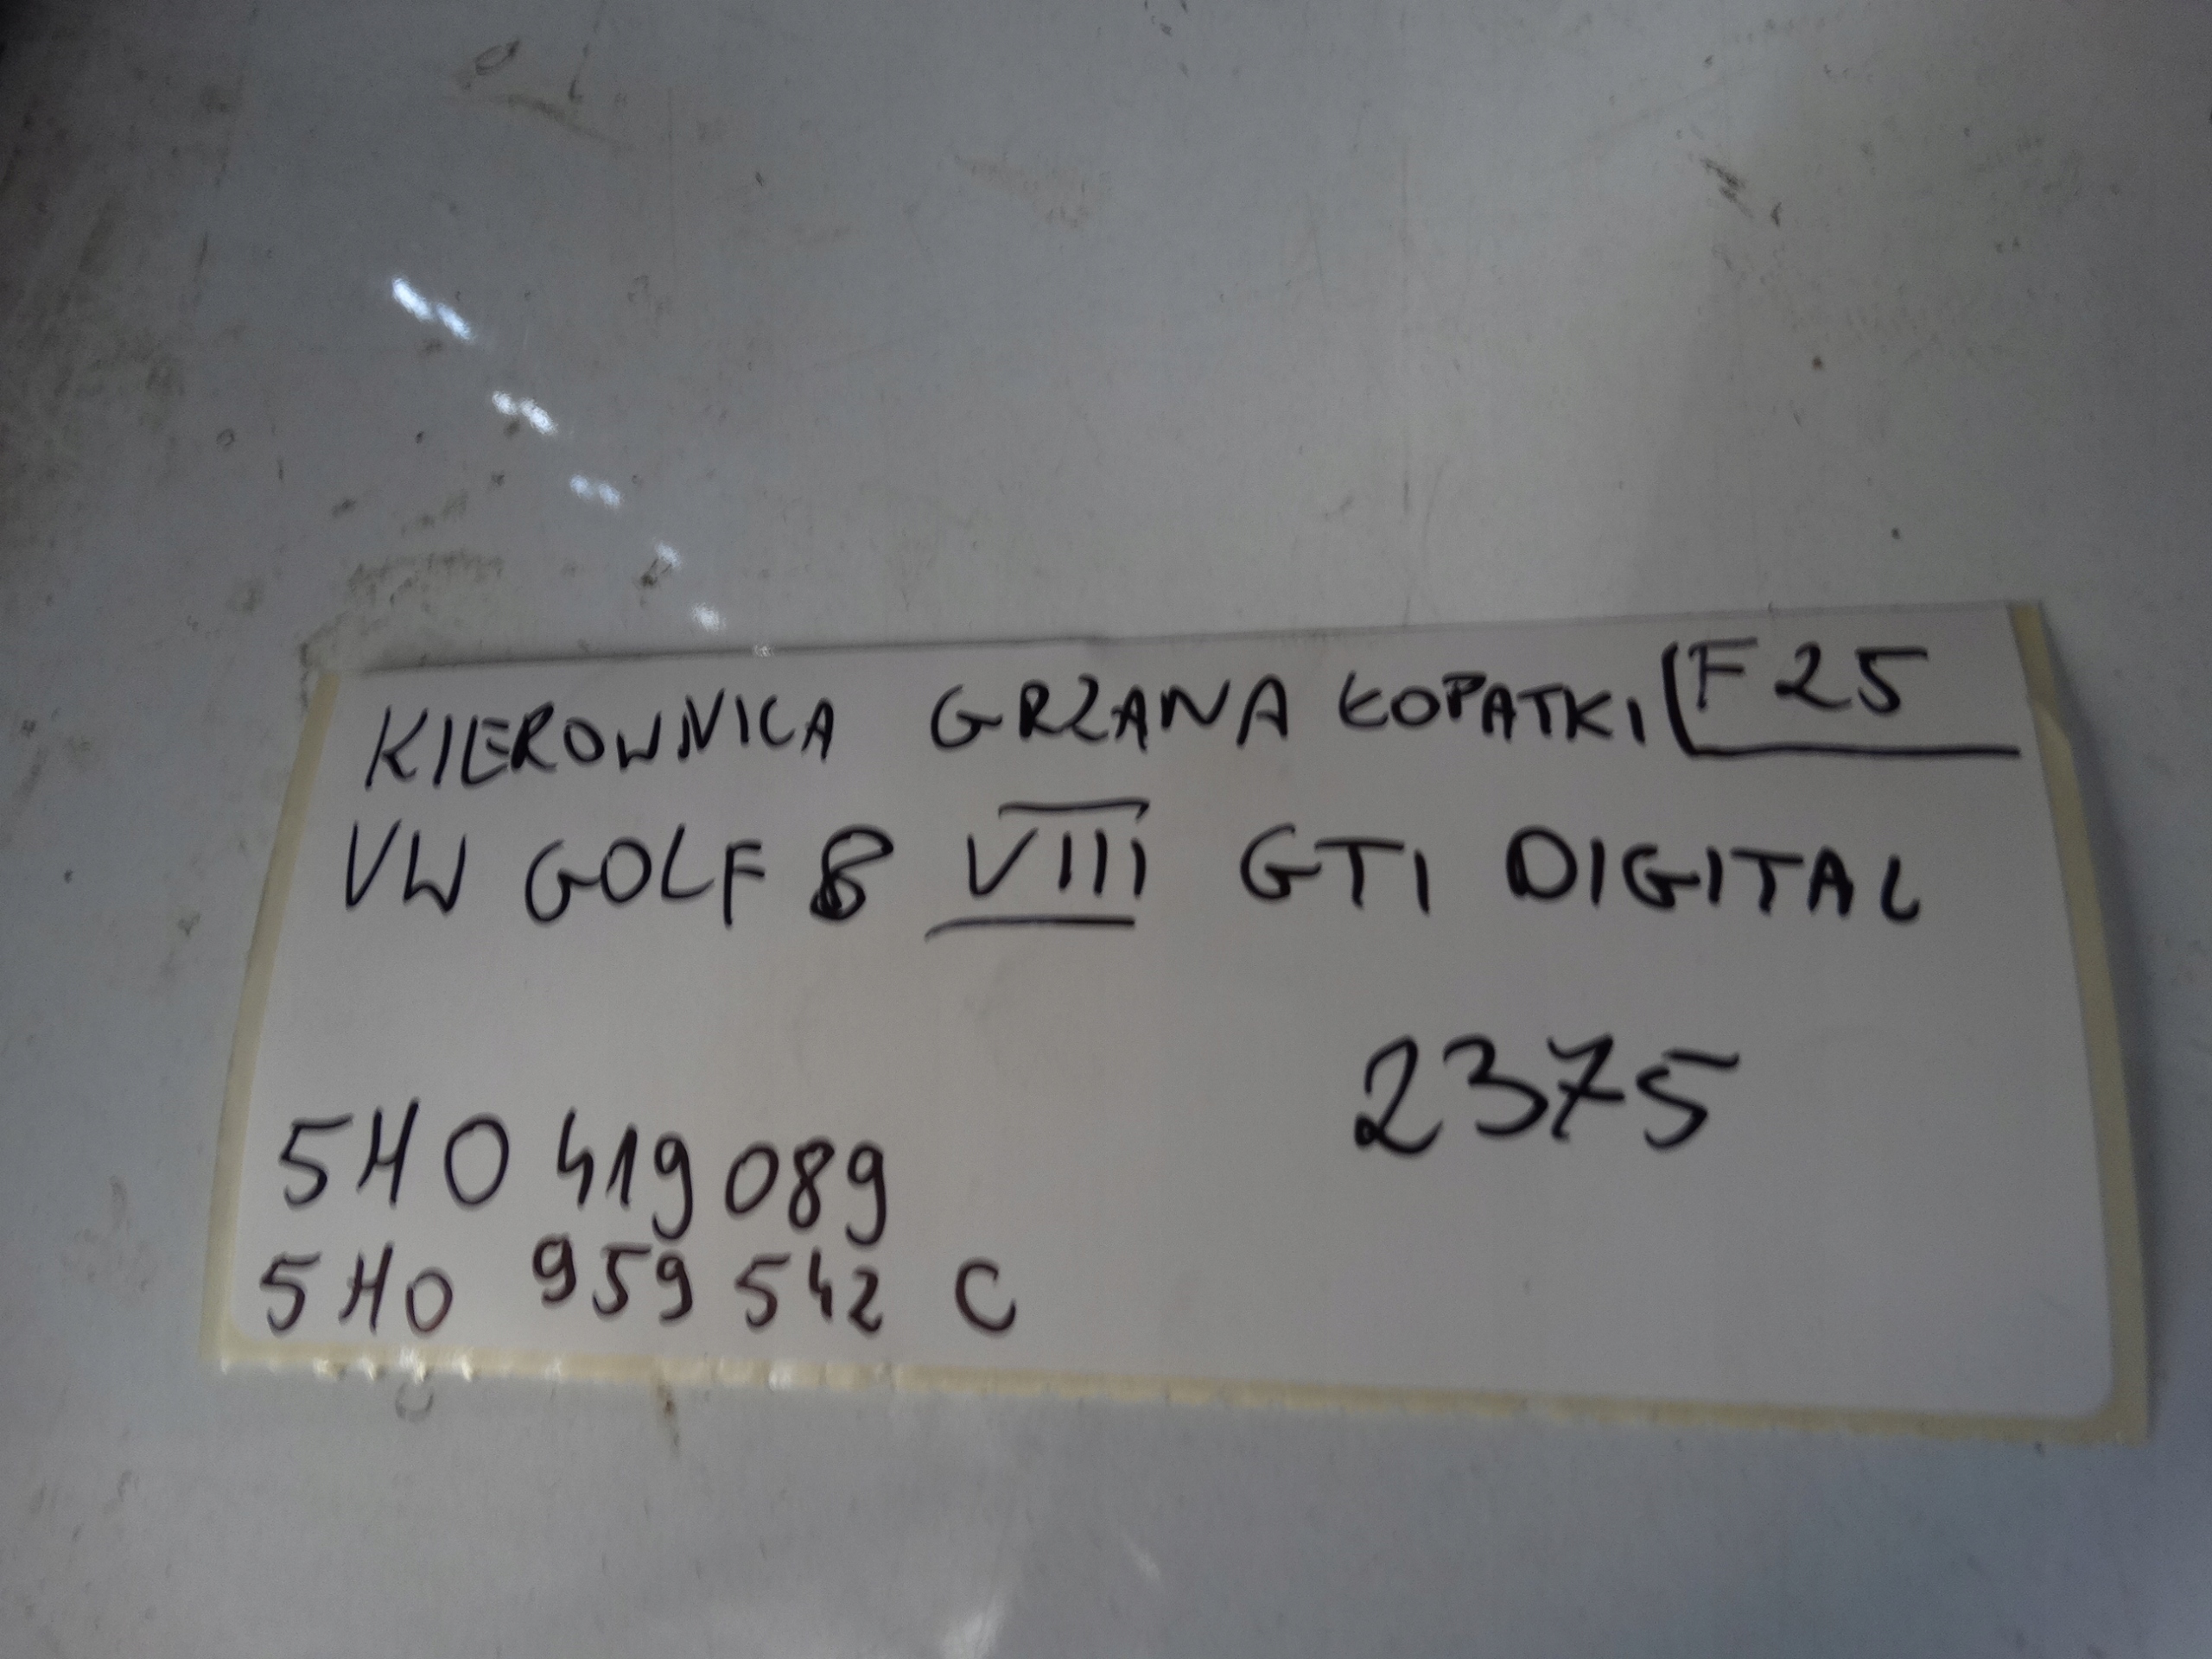 KIEROWNICA GRZANA ŁOPATKI F25
VW GOLF 8 VIII GTI DIGITAL
2375
5H0 419 089
5H0 959 542 C